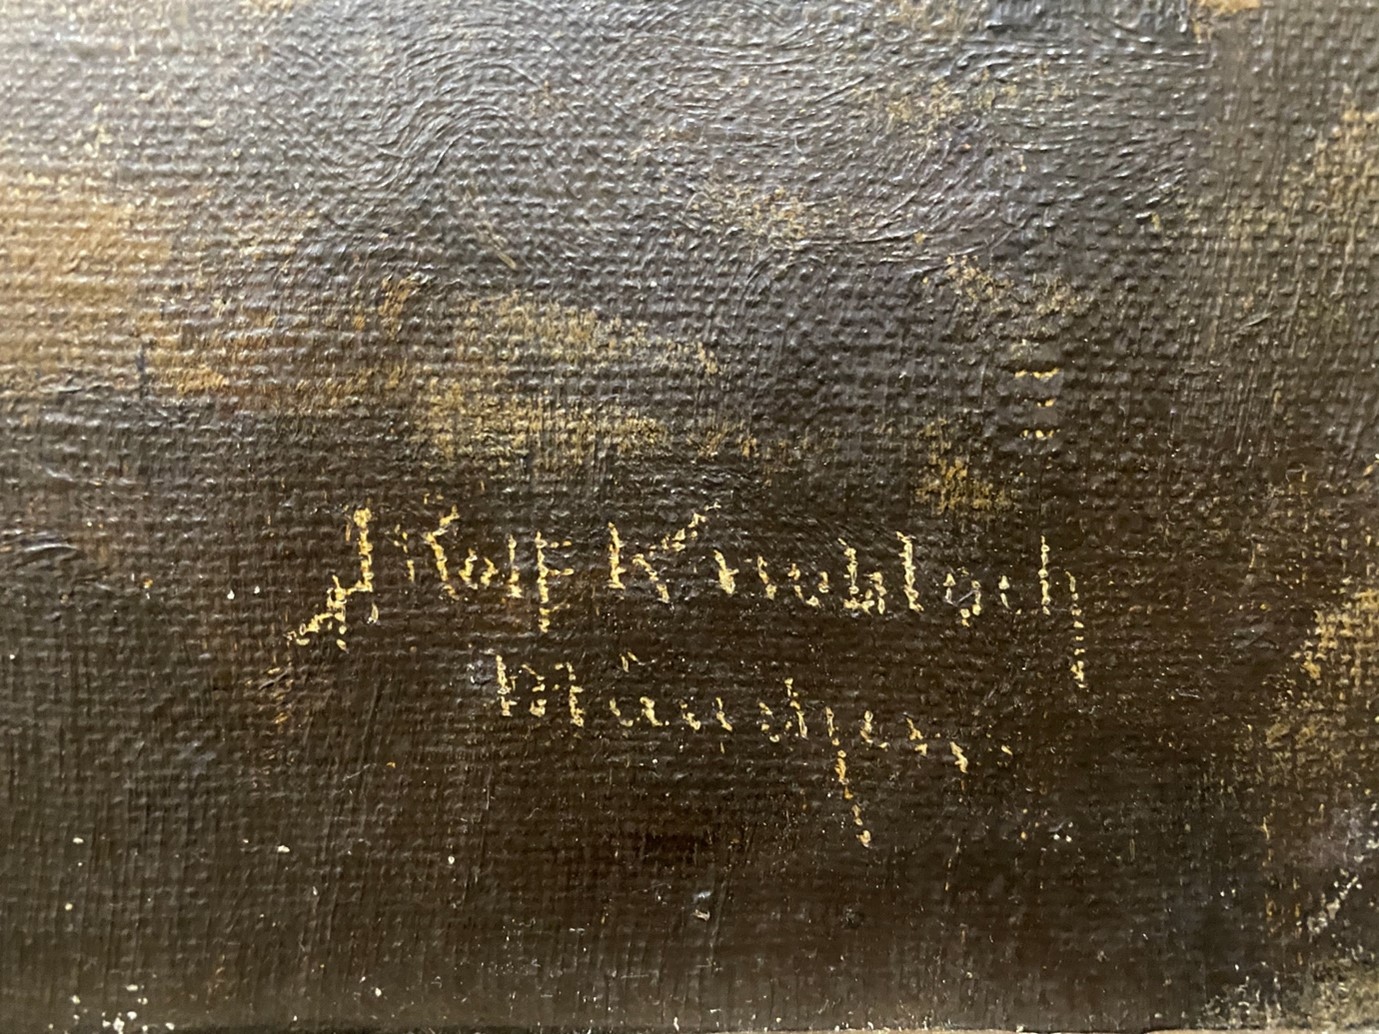 J Rolf Knobloch
München.